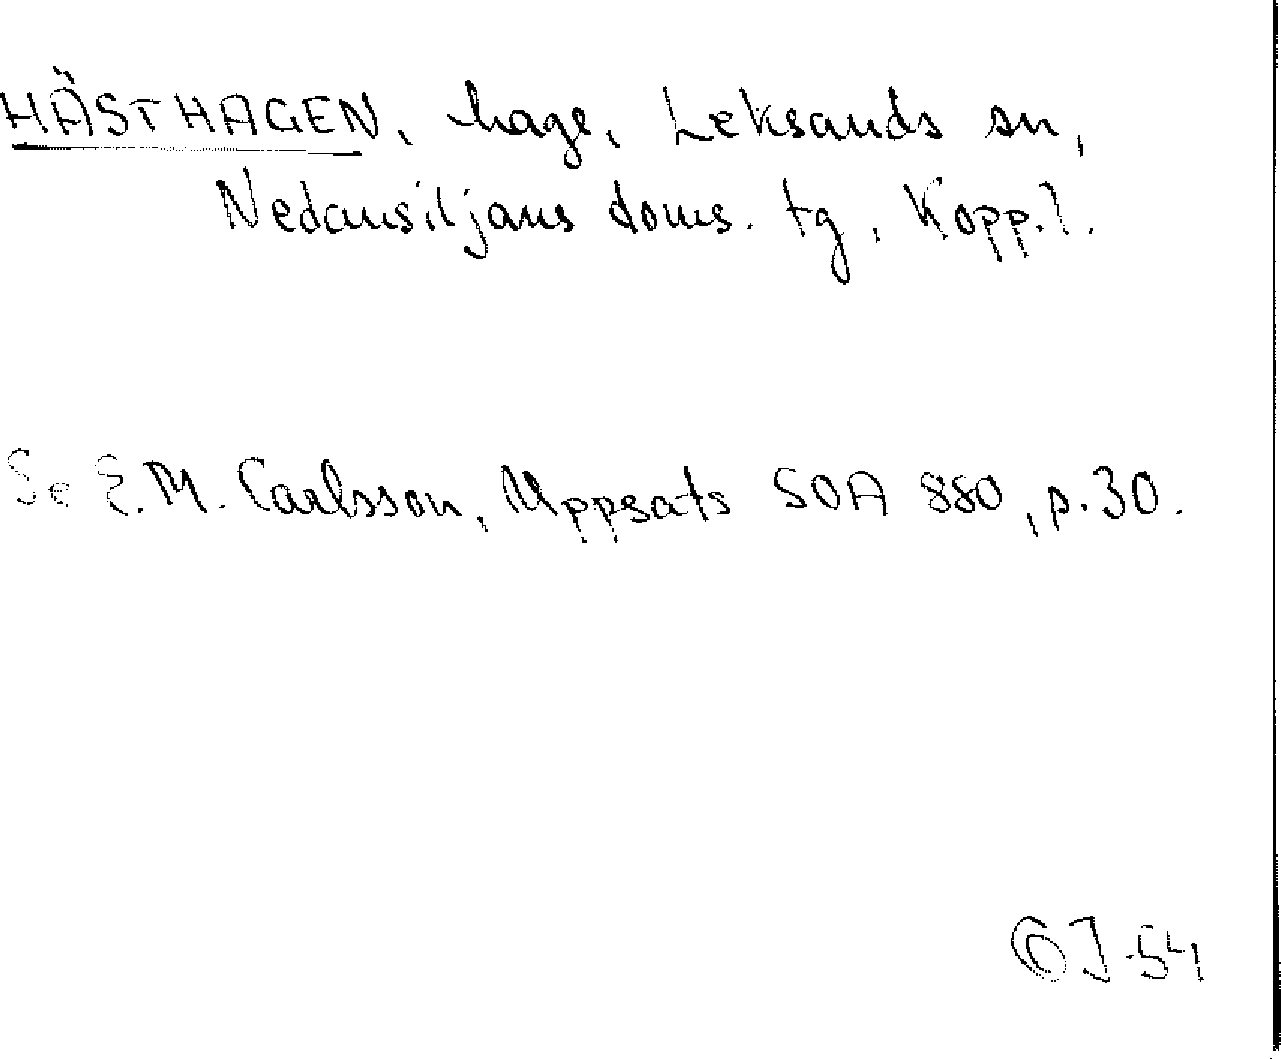 HÄSTHAGEN, hage, Leksands sn,
Nedansiljans doms. tg, Kopp.l.
Se E.M. Carlsson, Uppsats SOA 880, p.30.
GJ-54